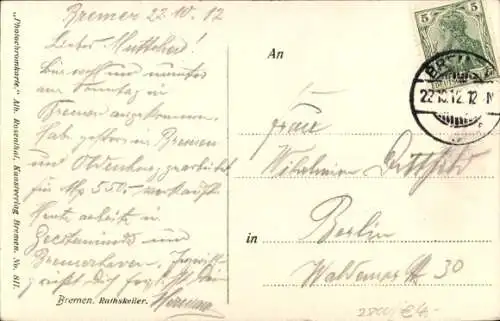 "Photochromkarte," Alb. Rosenthal, Kunstverlag Bremen. No. 811.
Bremen 22.10.12
Liebes Muttchen!
Bin wohl und munter
am Sonntag in
Bremen angekommen.
Hab gestern in Bremen
und Oldenburg gearbeitet
für Mk 550.- verkauft
Heute arbeite in
Geestemünde und
Bremerhaven.
grüßt Dich Dein
Hermann
Bremen. Ratskeller.
An
Frau
Wilhelmine
in Berlin
Waldemar Str 30
5 5
BREMEN
22.10.12.12-1N
€4.-